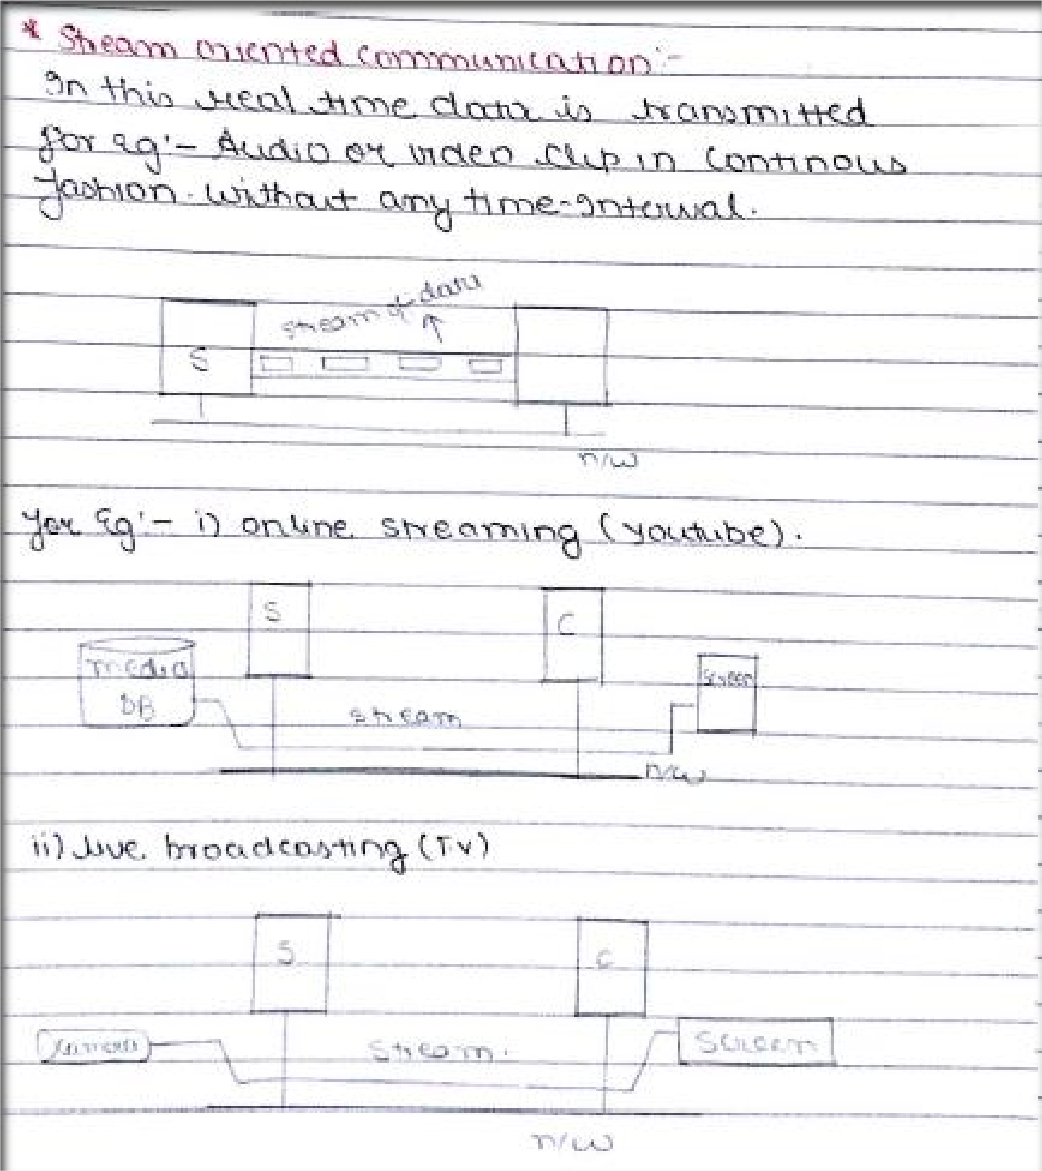 * Stream oriented communication:-
In this real time data is transmitted
for eg:- Audio or video clip in continous
fashion. without any time-Interval.
stream of data
S
n/w
for Eg:- i) online streaming (youtube).
S
C
media
DB
screen
stream
n/w
ii) live broadcasting (TV)
S
C
camera
stream.
screen
n/w